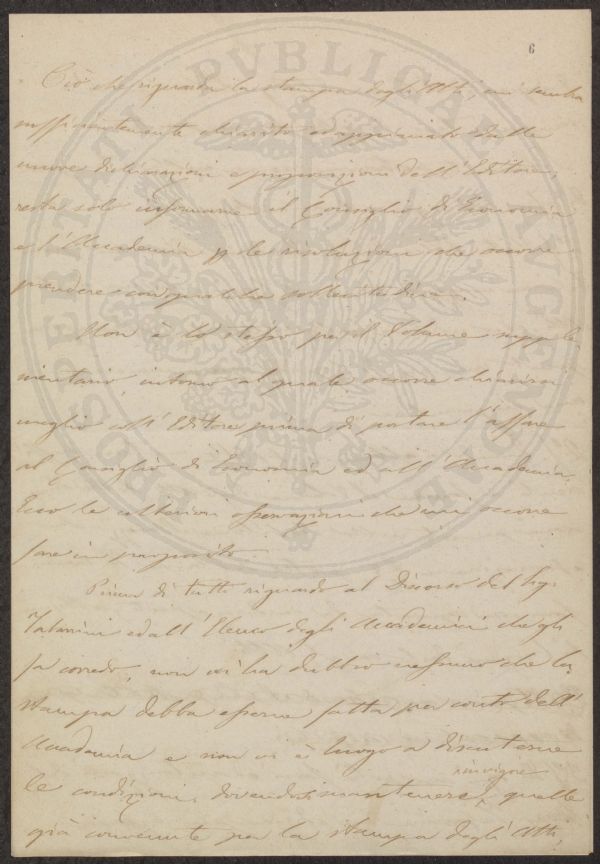 6
Ciò che riguarda la stampa degli Atti, mi sembra
sufficientemente chiarito ed appianato dalle
nuove dichiarazioni e proposizioni dell'Editore,
resta solo informarne il Consiglio di Economia
e l'Accademia p le risoluzioni che occorre
prendere con qualche sollecitudine.
Non è lo stesso per il Volume supple
mentario, intorno al quale occorre chiarirsi
meglio coll'Editore prima di portare l'affare
al Consiglio di Economia ed all'Accademia.
Ecco le ulteriori osservazioni che mi occorre
fare in proposito.
Prima di tutto riguardo al Discorso del Sig.
ed all'Elenco degli Accademici che gli
fa corredo, non vi ha dubbio nessuno che la
stampa debba esserne fatta per conto dell'
Accademia e non vi è luogo a discuterne
le condizioni, dovendosi mantenere in vigore quelle
già convenute per la stampa degli Atti,
PROSPERITATI PVBLICAE AVGENDAE